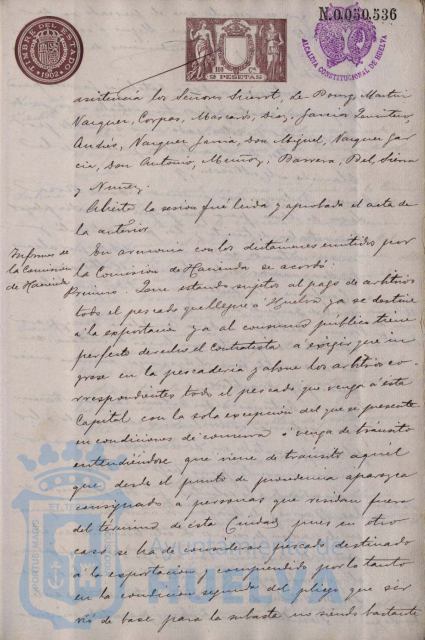 N.0.050.536
TIMBRE DEL ESTADO
1902
2 PESETAS
ALCALDIA CONSTITUCIONAL DE HUELVA
asistencia los Señores Siurot, de Pouy, Martin
Vazquez, Corpas, Mascarós, Diaz, Garcia Quintero,
Andrés, Vazquez Garcia, Don Miguel, Vazquez Gar-
cia, Don Antonio, Muñoz, Barrera, Del Sierra
y Nuñez.
Abierta la sesion fué leida y aprobada el acta de
la anterior.
Informes de
la Comision
de Hacienda
En armonia con los dictámenes emitidos por
la Comision de Hacienda se acordó:
Primero. Que estando sujetos al pago de arbitrios
todo el pescado que llegue á Huelva ya se destine
á la exportacion ya al consumo publico tiene
perfecto derecho el Contratista á exigir que in-
grese en la pescaderia y abone los arbitrios co-
rrespondientes todo el pescado que venga á esta
Capital con la sola excepcion del que se presente
en condiciones de conserva ó venga de tránsito
entendiéndose que viene de transito aquel
que desde el punto de procedencia aparezca
consignado á personas que residan fuera
del termino de esta Ciudad, pues en otro
caso se ha de considerar pescado destinado
á la exportacion y comprendido por lo tanto
en la condicion segunda del pliego que sir-
vió de base para la subasta no siendo bastante
Ayuntamiento de
HUELVA